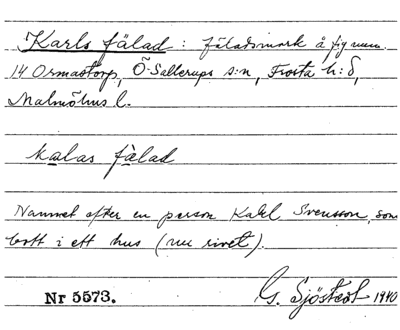 Karls fälad: fäladsmark å fig num.
14 Ormastorp, Ö. Sallerups s:n, Frosta h:d,
Malmöhus l.
kalas fälad
Namnet efter en person Kakl Svensson, som
bott i ett hus (nu rivet).
Nr 5573. G. Sjöstedt 1940